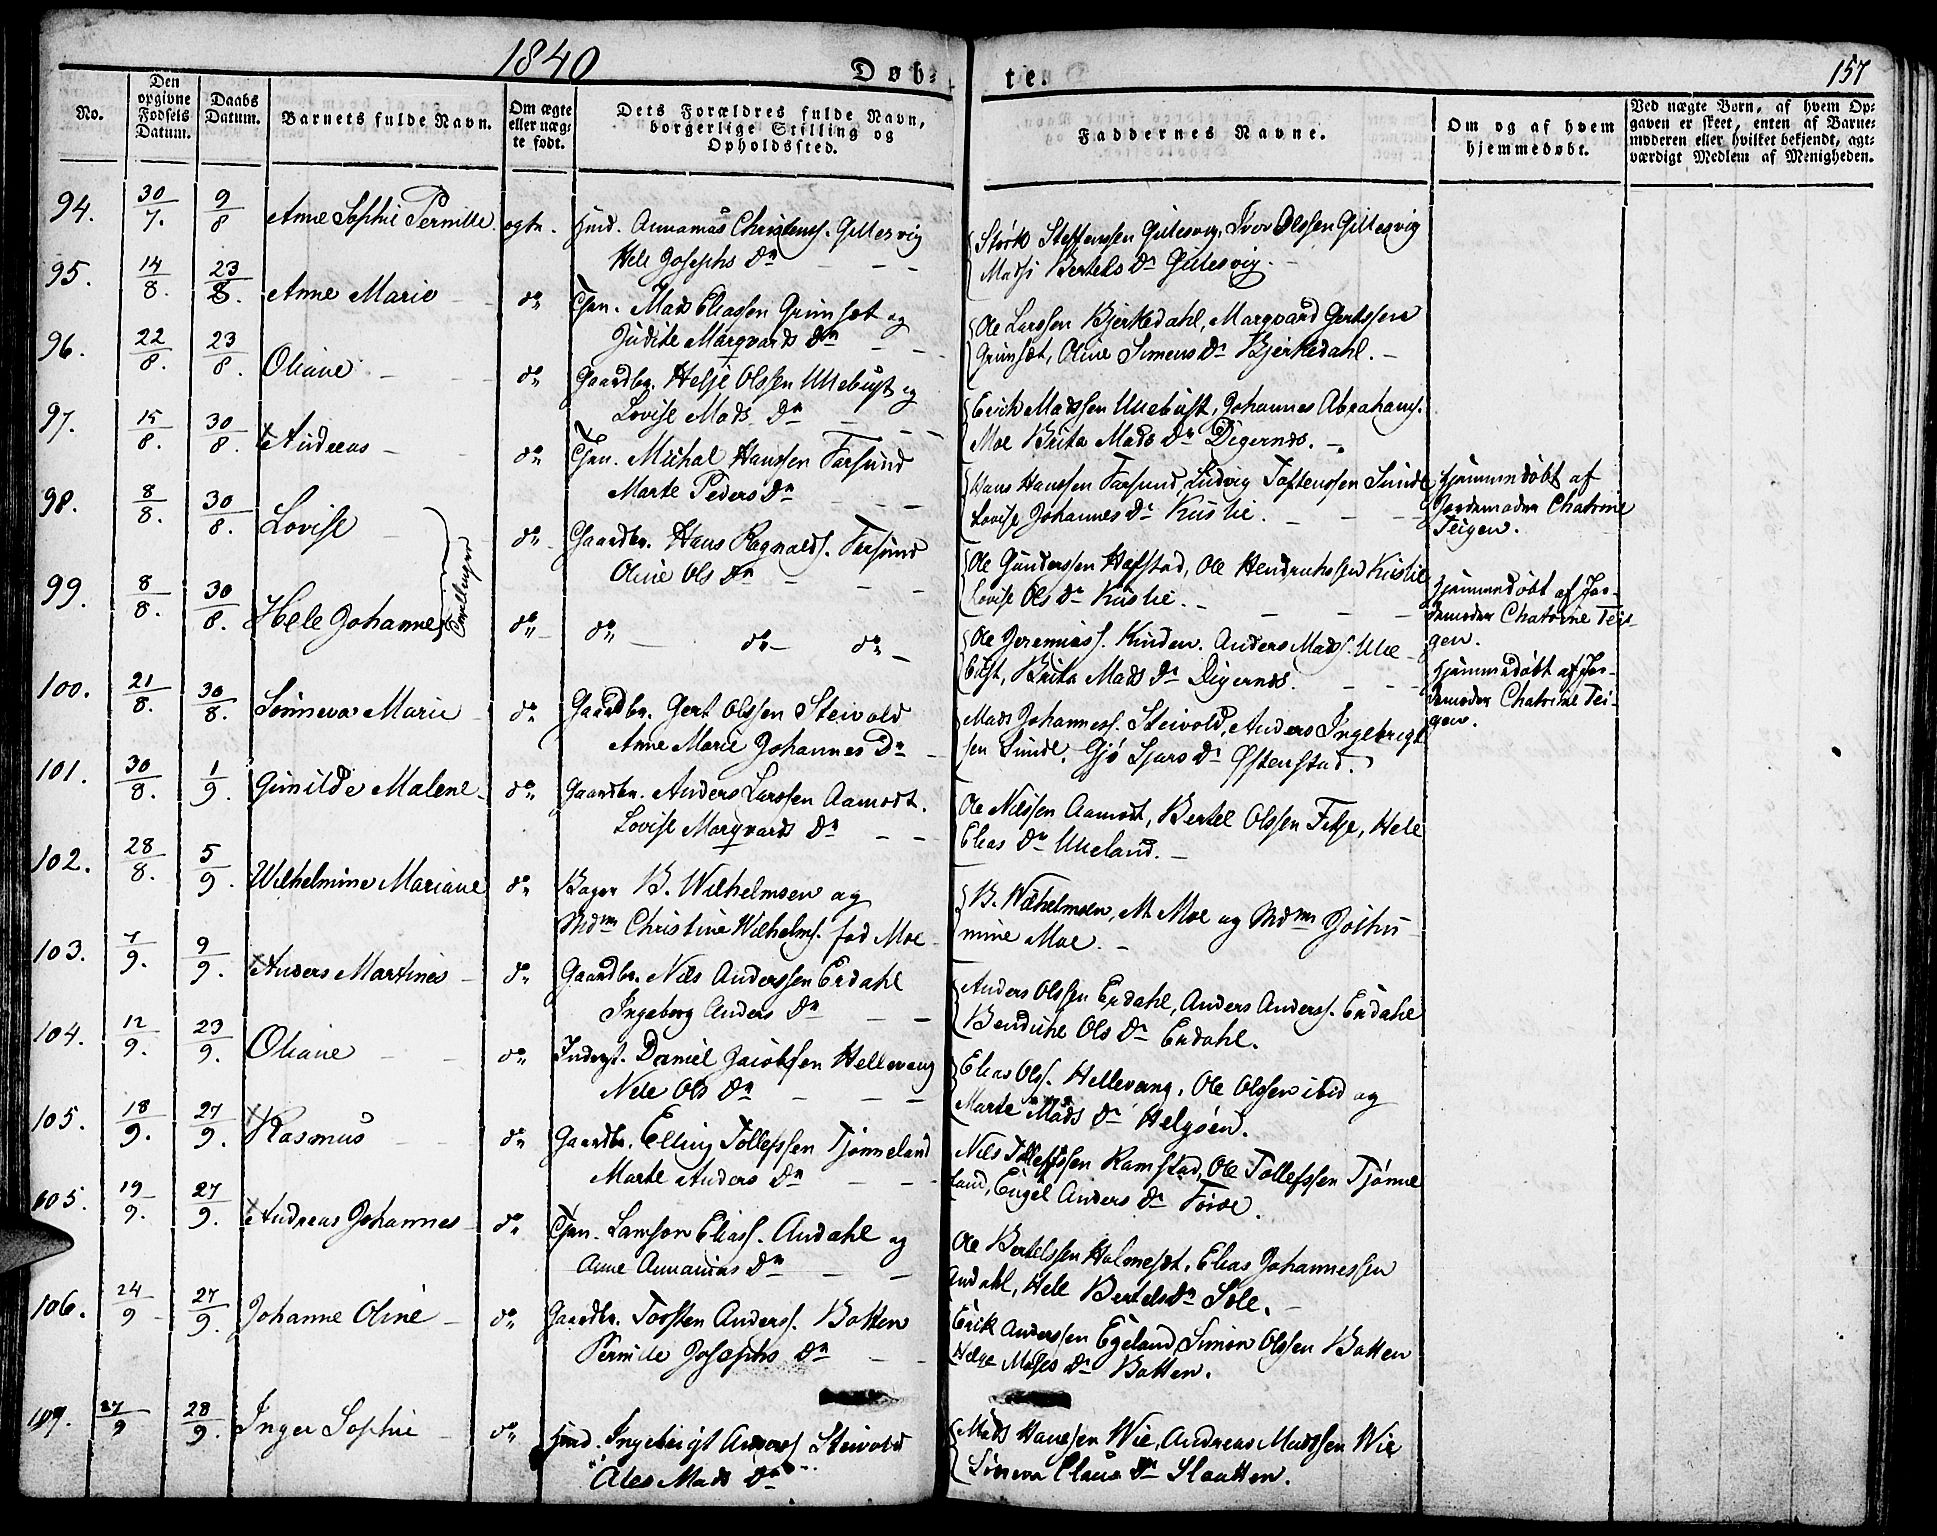 1840
Døb-
te.
157
No.
Den
opgivne
Fødsels
Datum.
Daabs
Datum.
Barnets fulde Navn.
Om ægte
eller uæg-
te født.
Dets Forældres fulde Navn,
borgerlige Stilling og
Opholdssted.
Faddernes Navne.
Om og af hvem
hjemmedøbt.
Ved uægte Børn, af hvem Op-
gaven er skeet, enten af Barne-
moderen eller hvilket bekjendt, agt-
værdigt Medlem af Menigheden.
94. 30/7. 9/8 Anne Sophie Pernille. Christens. Gillesvig
Hele Josephs Dr
Størk Steffenssen Gillesvig, Iver Olssen Gillesvig
Bertels Dr Gillesvig.
95. 14/8. 23/8. Anne Marie do Mads Eliassen Grimsæt og
Judite Marqvards Dr
Ole Larssen Bjerkedahl, Marqvard Gertssen
Grimsæt, Oline Simens Dr Bjerkedahl.
96. 22/8. 23/8. Oliane do Gaardbr. Helje Olssen Ullebust og
Lovise Mads Dr
Erick Madssen Ullebust, Johannes Abrahams.
Moe Brita Mads Dr Digernæs.
97. 15/8. 30/8. Andreas do Michal Hanssen Farsund
Marte Peders Dr
Hans Hanssen Farsund, Ludvig Toftenssen Sunde
Lovise Johannes Dr Kuslie.
Hjemmedøbt af
Jordemoder Chatrine
Teigen.
98. 8/8. 30/8. Lovise do Gaardbr. Hans Ragnalds. Farsund
Oline Ols Dr
Ole Gunderssen Hafstad, Ole Hendrichssen Kuslie
Lovise Ols Dr Kuslie.
Hjemmedøbt af Jor-
demoder Chatrine Tei-
gen.
99. 8/8. 30/8. Hele Johanne Tvillinger do do do do
Ole Jeremias. Kinden. Anders Mads. Ulle-
bust, Brita Mads Dr Digernæs.
Hjemmedøbt af Jor-
demoder Chatrine Tei-
gen.
100. 21/8. 30/8. Sünneva Marie do Gaardbr. Gert Olssen Steivold
Anne Marie Johannes Dr
Mads Johanness. Steivold, Anders Ingebrigt
sen Sunde, Gjø Sjurs Dr Øftenstad.
101. 30/8. 1/9. Gunilde Malene do Gaardbr. Anders Larssen Aamodt.
Lovise Marqvards Dr
Ole Nilssen Aamodt, Bertel Olssen Fitje, Hele
Elias Dr Uueland.
102. 28/8. 5/9. Wilhelmine Mariane do Bager B. Wilhelmsen og
Mdm Christine Wilhelms. fød Moe
B. Wilhelmsen, M. Moe og Mdm
mine Moe.
103. 7/9. 9/9. Anders Martines do Gaardbr. Nils Anderssen Erdahl
Ingeborg Anders Dr
Anders Olssen Erdahl, Anders Anderss. Erdahl
Bendicke Ols Dr Erdahl.
104. 12/9. 23/9. Oliane do Inderst. Daniel Jacobsen Hellevang
Nele Ols Dr
Elias Olss. Hellevang, Ole Olssen ibid og
Marte Mads Dr Helgøen.
105. 18/9. 27/9. Rasmus do Gaardbr. Elling Tollefssen Tjønneland
Marte Anders Dr
Nils Tolleffssen Ramstad, Ole Tollefssen Tjønne
land, Engel Anders Dr Førde.
105. 19/9. 27/9. Andreas Johannes do Eliass. Andahl og
Anne Annanias Dr
Ole Bertelssen Holmesæt, Elias Johannessen
Andahl, Hele Bertels Dr Sole.
106. 24/9 27/9. Johanne Oline do Gaardbr. Torsten Anderss. Botten
Pernille Josephs Dr
Erik Anderssen Egeland, Simon Olssen Botten
Helge Moses Dr Botten.
107. 27/9 28/9. Inger Sophie do Ingebrigt Anderss. Steivold
Ales Mads Dr
Mads Hanssen Wie, Andreas Madssen Wie
Claus Dr Slaatten.